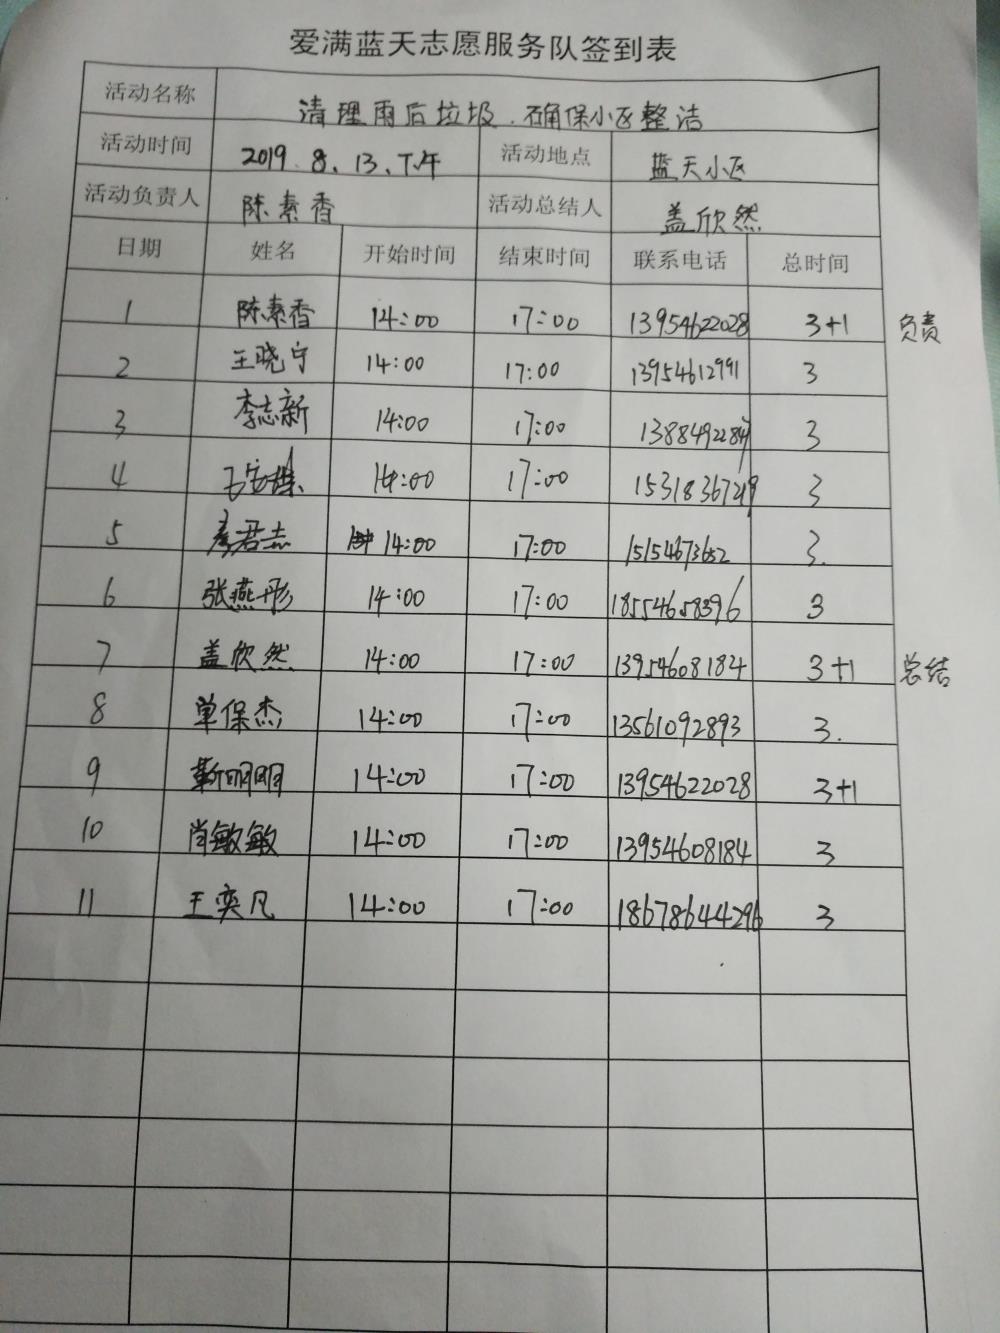 爱满蓝天志愿服务队签到表
活动名称 清理雨后垃圾.确保小区整洁
活动时间 2019.8.13.下午 活动地点 蓝天小区
活动负责人 陈素香 活动总结人 盖欣然
日期 姓名 开始时间 结束时间 联系电话 总时间
1 陈素香 14:00 17:00 13954622028 3+1 负责
2 王晓宁 14:00 17:00 13954612991 3
3 李志新 14:00 17:00 3
4 14:00 17:00 15318367219 3
5 君志 14:00 17:00 15154673652 3.
6 张燕彤 14:00 17:00 18554658396 3
7 盖欣然 14:00 17:00 13954608184 3+1 总结
8 单保杰 14:00 17:00 13561092893 3.
9 靳明明 14:00 17:00 13954622028 3+1
10 肖敏敏 14:00 17:00 13954608184 3
11 王奕凡 14:00 17:00 18678644296 3